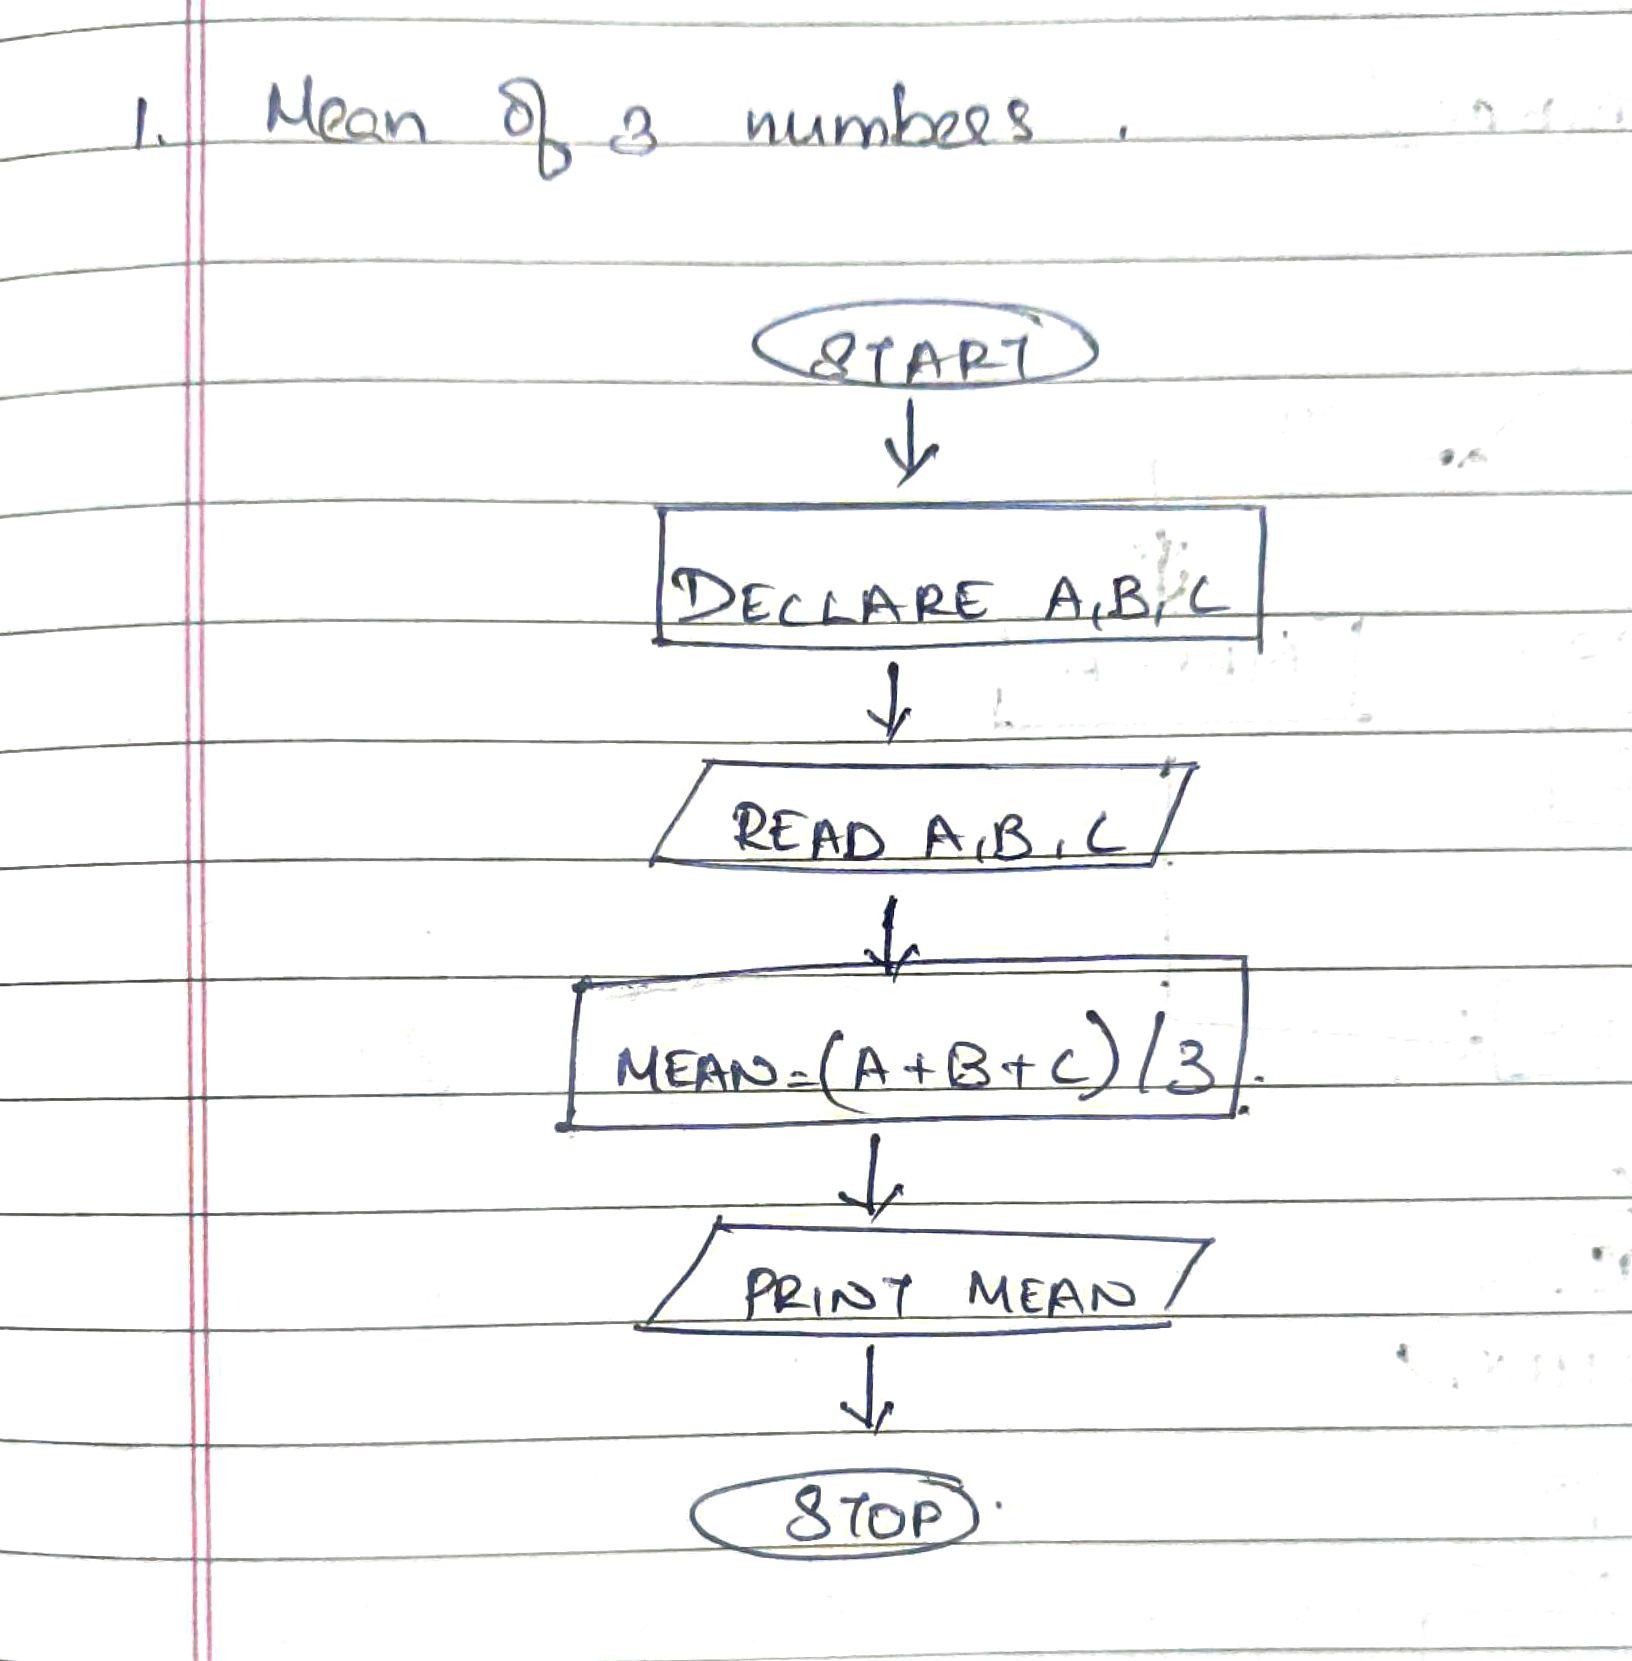 1. Mean of 3 numbers.
START
DECLARE A,B,C
READ A,B,C
MEAN=(A+B+C)/3.
PRINT MEAN
STOP.